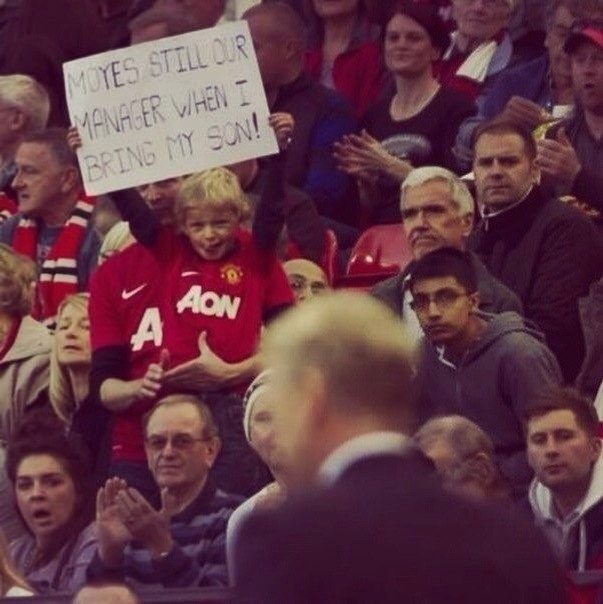 MOYES STILL OUR
MANAGER WHEN I
BRING MY SON!
AON
A